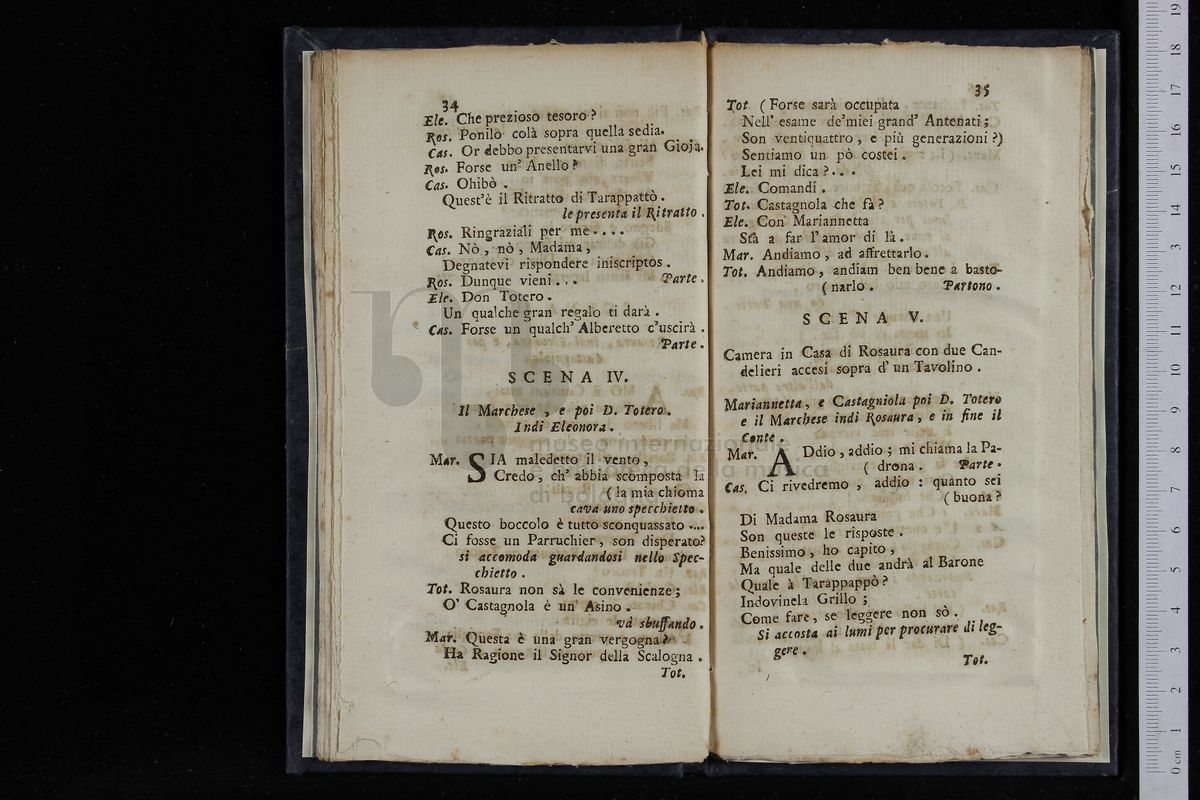 34
Ele. Che prezioso tesoro ?
Ros. Ponilo colà sopra quella sedia.
Cas. Or debbo presentarvi una gran Gioja.
Ros. Forse un' Anello ?
Cas. Ohibò .
Quest'è il Ritratto di Tarappattò .
le presenta il Ritratto .
Ros. Ringraziali per me . . . .
Cas. Nò , nò , Madama ,
Degnatevi rispondere iniscriptos .
Ros. Dunque vieni . . . Parte .
Ele. Don Totero .
Un qualche gran regalo ti darà .
Cas. Forse un qualch' Alberetto c'uscirà .
Parte .
SCENA IV.
Il Marchese , e poi D. Totero .
Indi Eleonora .
Mar. SIA maledetto il vento ,
Credo , ch' abbia scomposta la
( la mia chioma
cava uno specchietto .
Questo boccolo è tutto sconquassato ....
Ci fosse un Parruchier , son disperato?
si accomoda guardandosi nello Spec-
chietto .
Tot. Rosaura non sà le convenienze ;
O' Castagnola è un' Asino .
và sbuffando .
Mar. Questa è una gran vergogna ?
Ha Ragione il Signor della Scalogna .
Tot.
35
Tot ( Forse sarà occupata
Nell' esame de'miei grand' Antenati ;
Son ventiquattro , e più generazioni ?)
Sentiamo un pò costei .
Lei mi dica ? . . .
Ele. Comandi .
Tot. Castagnola che fà ?
Ele. Con Mariannetta
Stà a far l'amor di là .
Mar. Andiamo , ad affrettarlo .
Tot. Andiamo , andiam ben bene a basto-
( narlo . Partono .
SCENA V.
Camera in Casa di Rosaura con due Can-
delieri accesi sopra d'un Tavolino .
Mariannetta , e Castagniola poi D. Totero
e il Marchese indi Rosaura , e in fine il
Conte .
Mar. ADdio , addio ; mi chiama la Pa-
( drona . Parte .
Cas. Ci rivedremo , addio : quanto sei
( buona ?
Di Madama Rosaura
Son queste le risposte .
Benissimo , ho capito ,
Ma quale delle due andrà al Barone
Quale à Tarappappò ?
Indovinela Grillo ;
Come fare , se leggere non sò .
Si accosta ai lumi per procurare di leg-
gere .
Tot.
museo internazionale
e biblioteca della musica
di bologna
0 cm 1 2 3 4 5 6 7 8 9 10 11 12 13 14 15 16 17 18 19